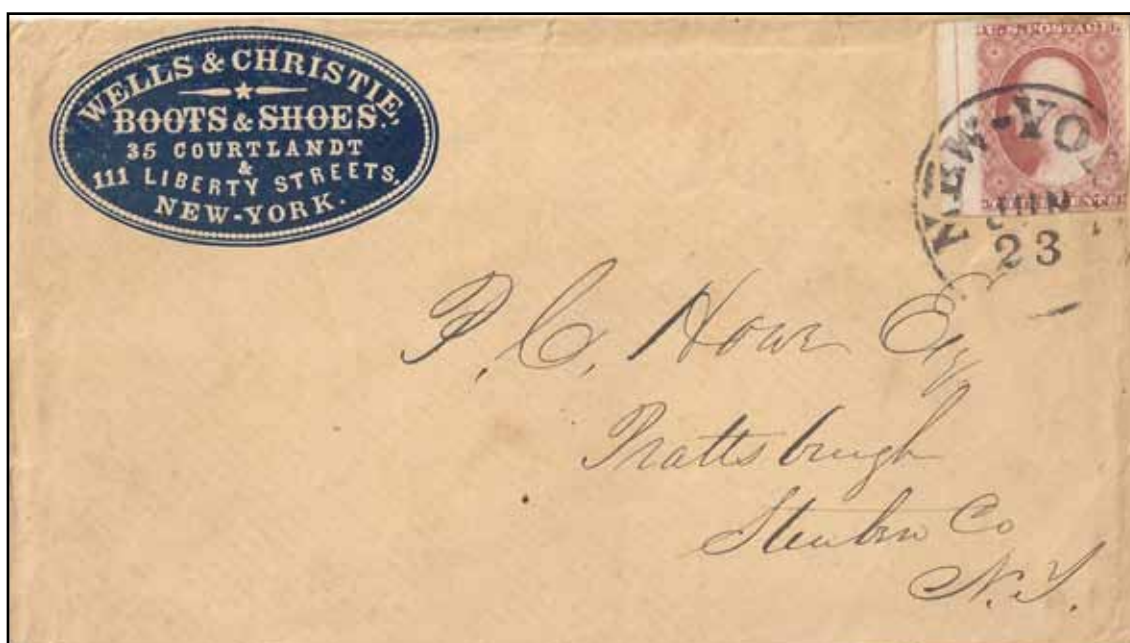 WELLS & CHRISTIE,
BOOTS & SHOES.
35 COURTLANDT
&
111 LIBERTY STREETS,
NEW-YORK.
U.S. POSTAGE
NEW-YO
JUN
23
P. C. Howe Esq
Prattsburgh
Steuben Co
N.Y.